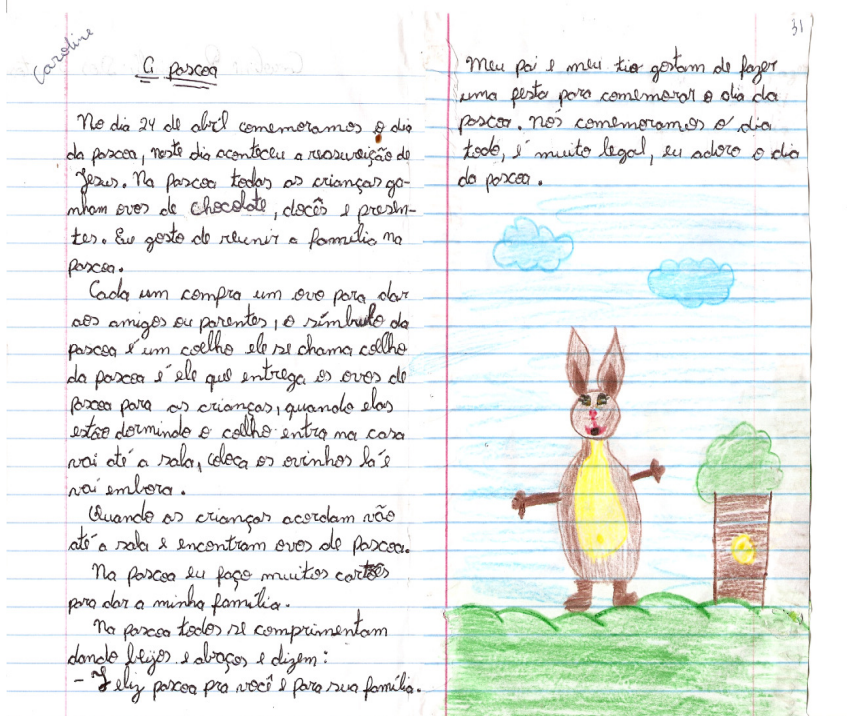 Caroline
A pascoa
No dia 24 de abril comemoramos o dia
da pascoa, neste dia aconteceu a ressureição de
Jesus. Na pascoa todas as crianças ga-
nham ovos de chocolate, docês e presen-
tes. Eu gosto de reunir a família na
pascoa.
Cada um compra um ovo para dar
aos amigos ou parentes, o símbulo da
pascoa é um coelho ele se chama coelho
da pascoa é ele que entrega os ovos de
pascoa para as crianças, quando elas
estão dormindo o coelho entra na casa
vai até a sala, coloca os ovinhos lá é
vai embora.
Quando as crianças acordam vão
até a sala e encontram ovos de pascoa.
Na pascoa eu faço muitos cartões
para dar a minha família.
Na pascoa todos se comprimentam
dando beijos e abraços e dizem:
- Feliz pascoa pra você e para sua família.
31
Meu pai e meu tio gostam de fazer
uma festa para comemorar o dia da
pascoa. Nós comemoramos o dia
todo, é muito legal, eu adoro o dia
da pascoa.